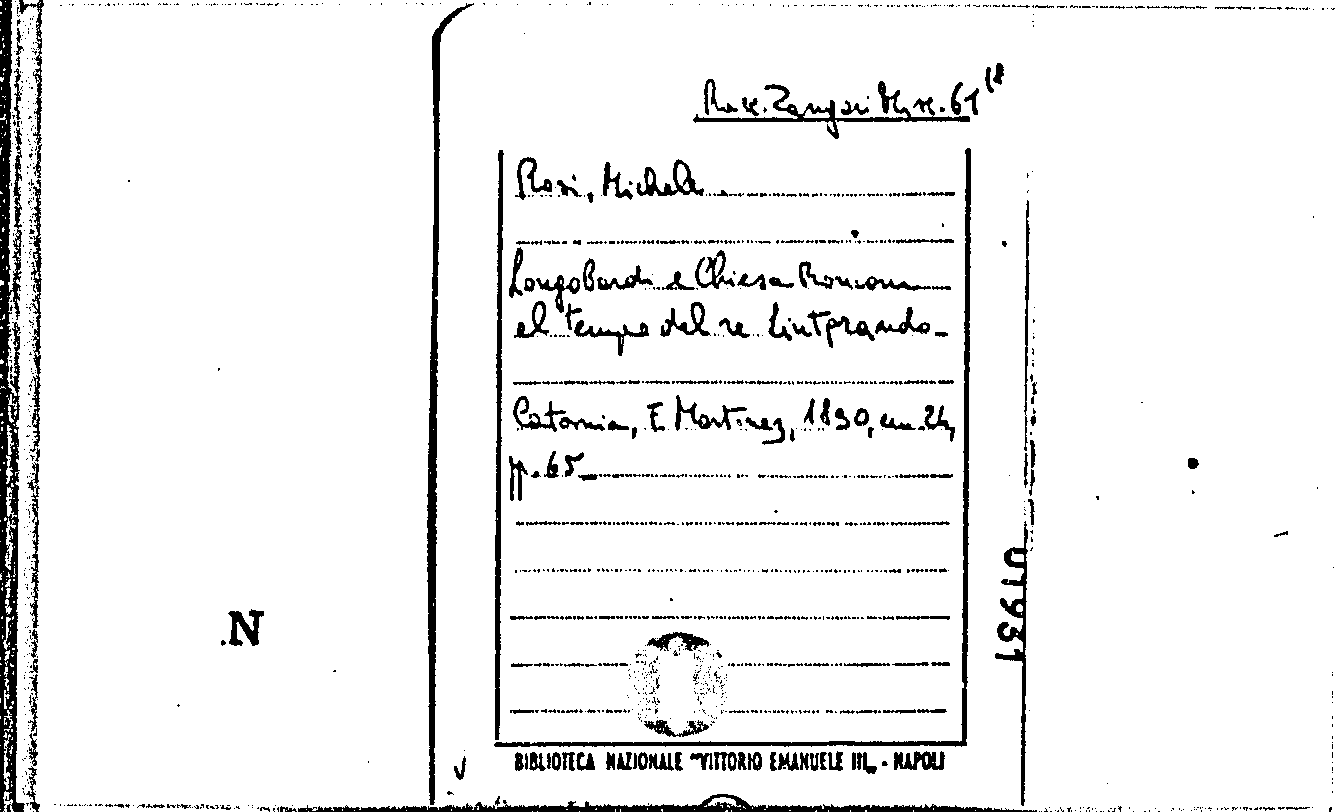 Racc. Zangari Misc. 61 18
Rosi, Michele
Longobardi e Chiesa Romana
al tempo del re Liutprando
Catania, F. Martinez, 1890, cm. 24,
pp. 65
01931
.N
BIBLIOTECA NAZIONALE "VITTORIO EMANUELE III„ - NAPOLI